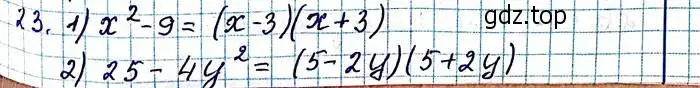 gdz.top
23. 1) x² - 9 = (x - 3)(x + 3)
2) 25 - 4y² = (5 - 2y)(5 + 2y)